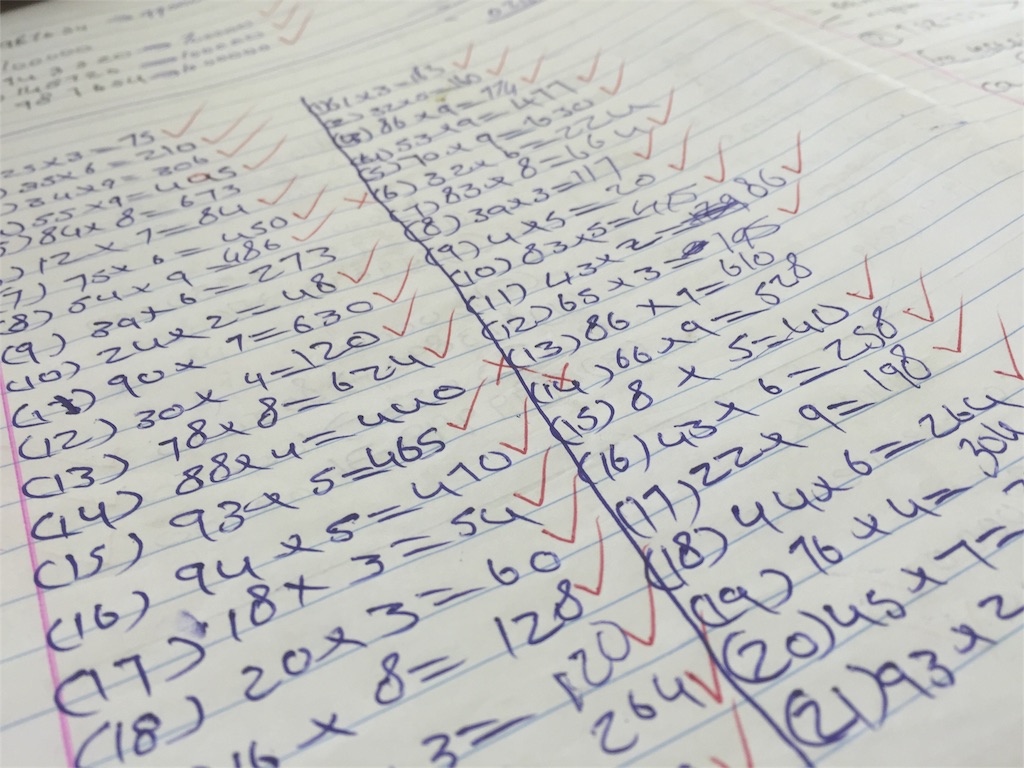 25 x 3 = 75
35 x 6 = 210
34 x 9 = 306
55 x 9 = 495
84 x 8 = 673
12 x 7 = 84
7) 75 x 6 = 450
8) 54 x 9 = 486
(9) 39 x 6 = 273
(10) 24 x 2 = 48
(11) 90 x 7 = 630
(12) 30 x 4 = 120
(13) 78 x 8 = 624
(14) 88 x 4 = 440
(15) 93 x 5 = 465
(16) 94 x 5 = 470
(17) 18 x 3 = 54
(18) 20 x 3 = 60
16 x 8 = 128
3 = 120
264
32 x 5 = 160
86 x 9 = 774
53 x 9 = 477
(5) 70 x 9 = 630
(6) 32 x
(7) 83 x 8 = 664
(8) 39 x 3 = 117
(9) 4 x 5 = 20
(10) 83 x 5 = 415
(11) 43 x 2 = 86
(12) 65 x 3 = 195
(13) 86 x 9 = 610
(14) 66 x 9 = 528
(15) 8 x 5 = 40
(16) 43 x 6 = 258
(17) 22 x 9 = 198
(18) 44 x 6 = 264
(19) 76 x 4 = 304
(20) 45 x 7 =
(21) 93 x 2